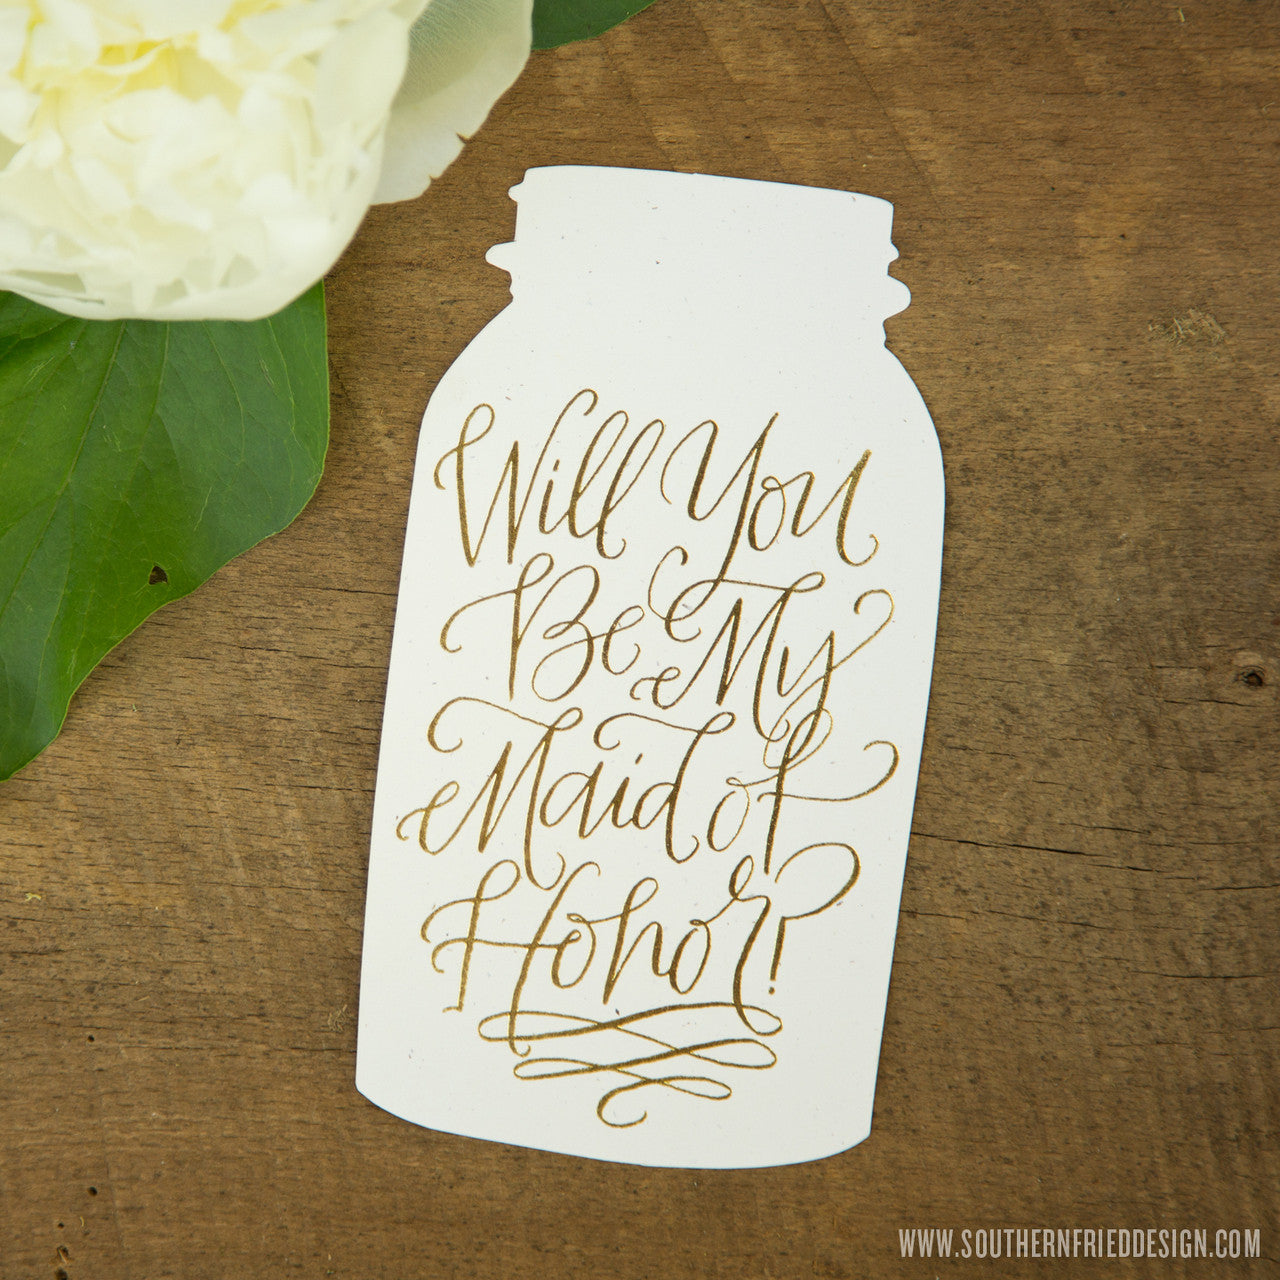 Will You
Be My
Maid of
Honor?
WWW.SOUTHERNFRIEDDESIGN.COM